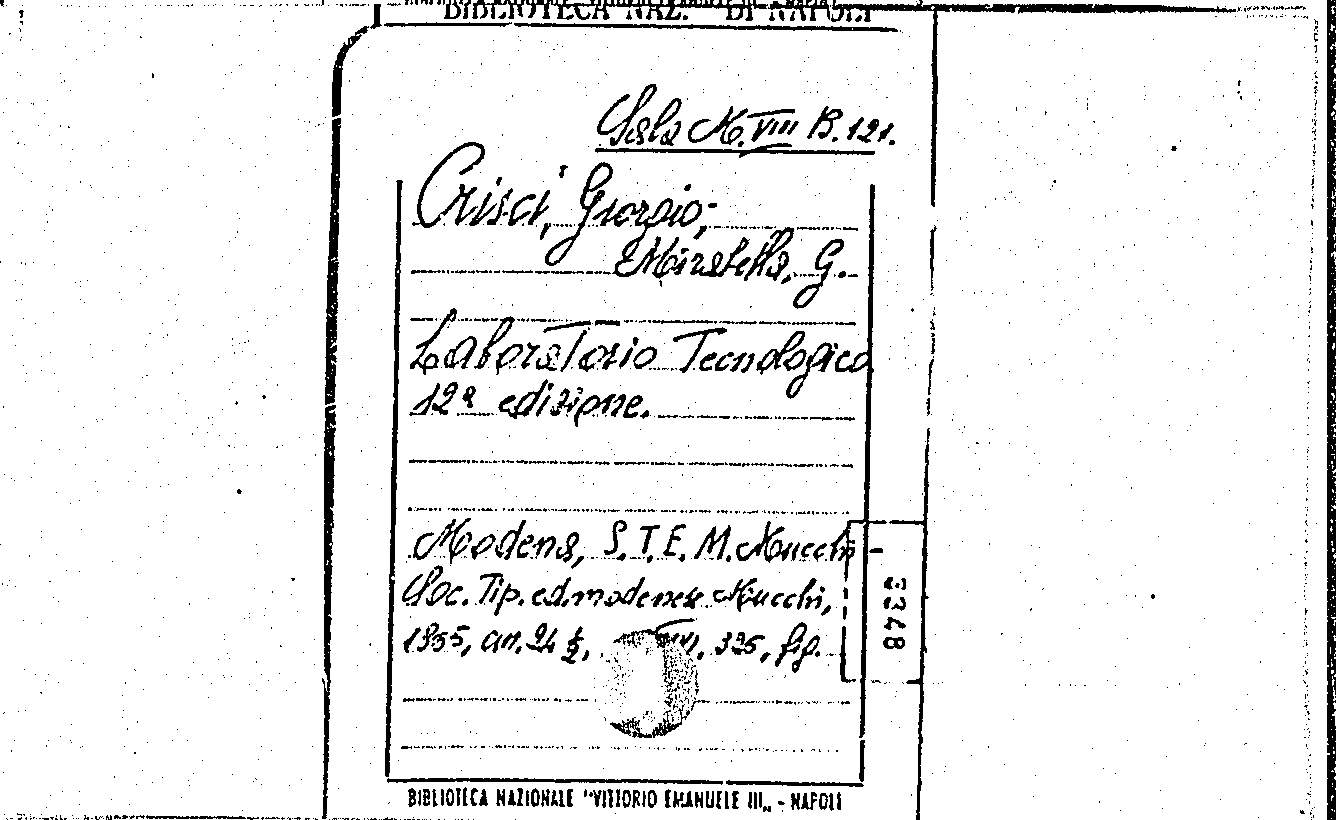 BIBLIOTECA NAZ. DI NAPOLI
Sala M. VIII B. 121.
Crisci, Giorgio;
Mirabella, G.
Laboratorio Tecnologico
12ª edizione.
Modena, S.T.E.M. Mucchi -
Soc. Tip. ed. modenese Mucchi,
1955, an. 24 ½, 325, fig.
3348
BIBLIOTECA NAZIONALE "VITTORIO EMANUELE III„ - NAPOLI